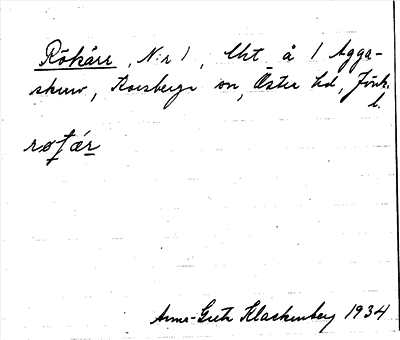 Rökärr, N:r 1, lht å 1 Agga-
skruv, Korsberga sn, Öster hd, Jönk.
l.
røçær
Anna-Greta Hlackenberg 1934